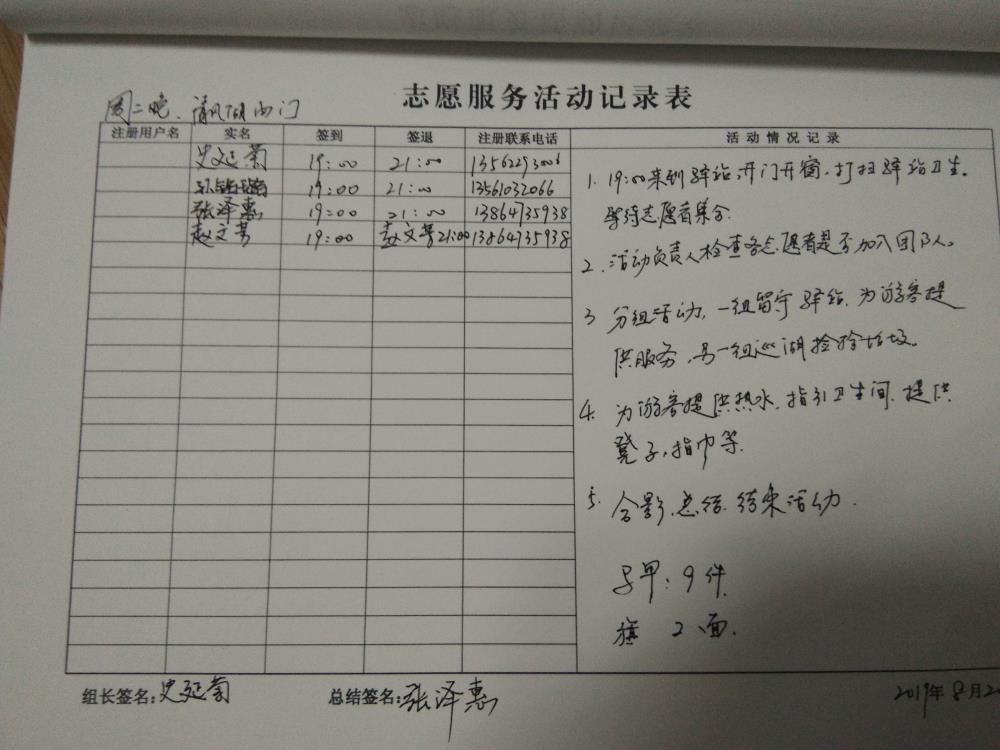 志愿服务活动记录表
周二晚、清风湖西门
注册用户名 实名 签到 签退 注册联系电话 活动情况记录
史延菊 19:00 21:00
19:00 21:00 13561032066
张泽惠 19:00 21:00 13864735938
赵文芳 19:00 赵文芳21:00 13864735938
1. 19:00来到驿站,开门开窗,打扫驿站卫生。
等待志愿者集合.
2. 活动负责人检查各志愿者是否加入团队。
3 分组活动,一组留守驿站.为游客提
供服务,另一组巡湖捡拾垃圾.
4. 为游客提供热水.指引卫生间.提供
凳子,指巾等.
5. 合影.总结.结束活动.
9件.
旗 2面.
组长签名:史延菊 总结签名:张泽惠 2019年8月2